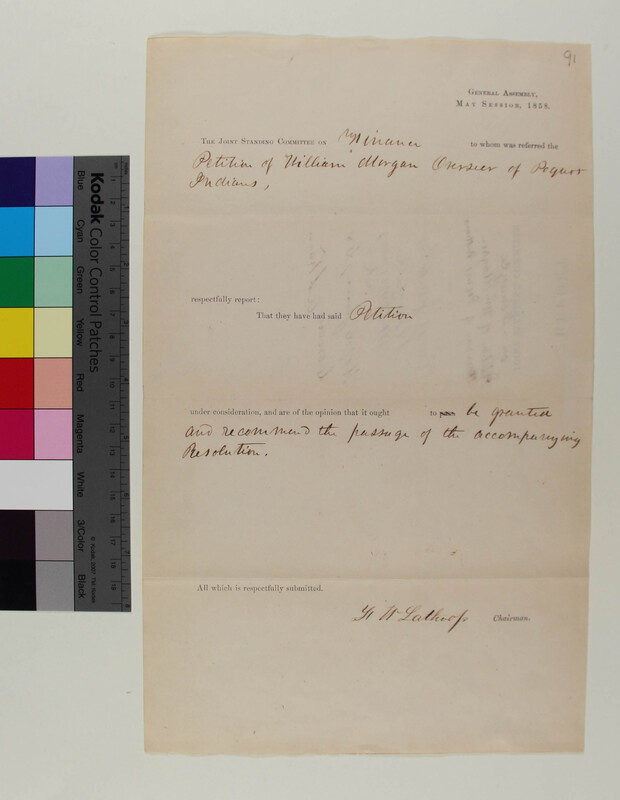 91
GENERAL ASSEMBLY,
MAY SESSION, 1858.
THE JOINT STANDING COMMITTEE ON Finance to whom was referred the
Petition of William Morgan Overseer of Pequot
Indians,
respectfully report:
That they have had said Petition
under consideration, and are of the opinion that it ought to be granted
and recommend the passage of the accompanying
Resolution.
All which is respectfully submitted.
W Lathrop Chairman.
Kodak Color Control Patches
Blue
Cyan
Green
Yellow
Red
Magenta
White
3/Color
Black